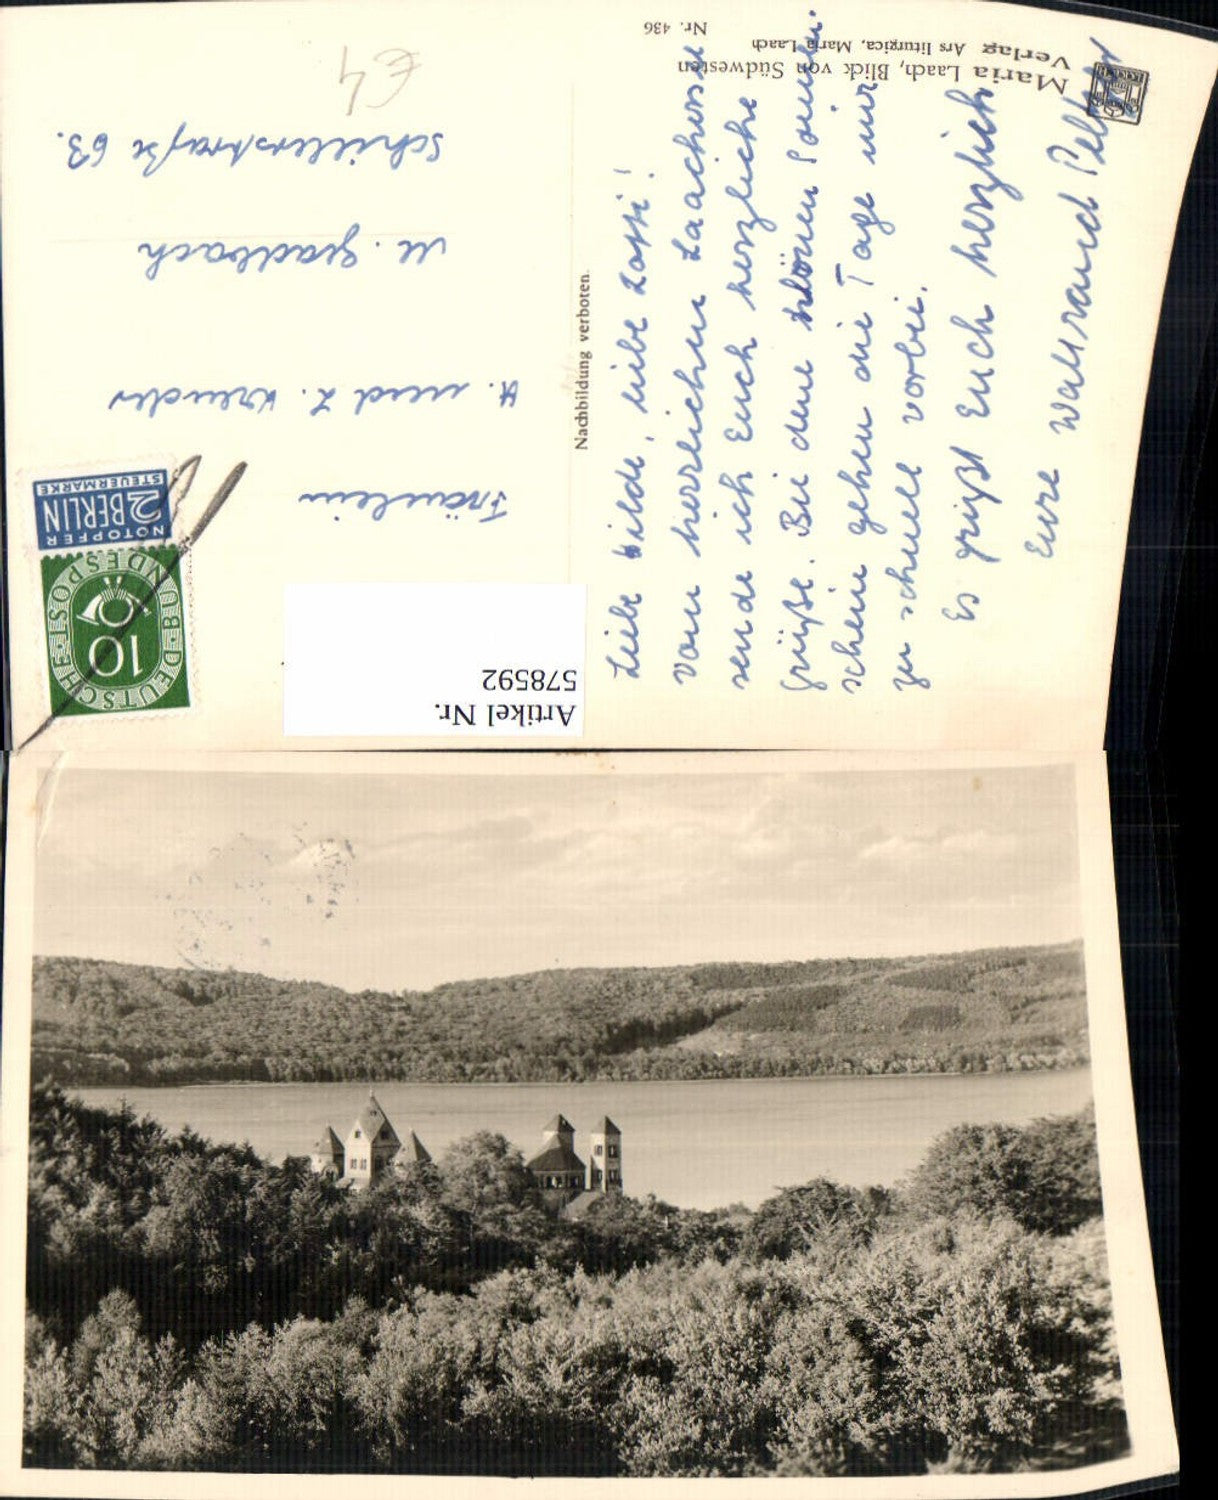 Maria Laach, Blick von Südwesten
Verlag Ars liturgica, Maria Laach
Nr. 436
Liebe Hilde, liebe Losi!
Vom herrlichen Laachersee
sende ich Euch herzliche
Grüße. Bei dem schönen Sonnen-
schein gehen die Tage nur
zu schnell vorbei.
Es grüßt Euch herzlich
Eure Waltraud
Nachbildung verboten.
€4
Fräulein
H. und L.
M. Gladbach
Schillerstraße 63.
NOTOPFER
2 BERLIN
STEUERMARKE
DEUTSCHE BUNDESPOST
10
Artikel Nr.
578592